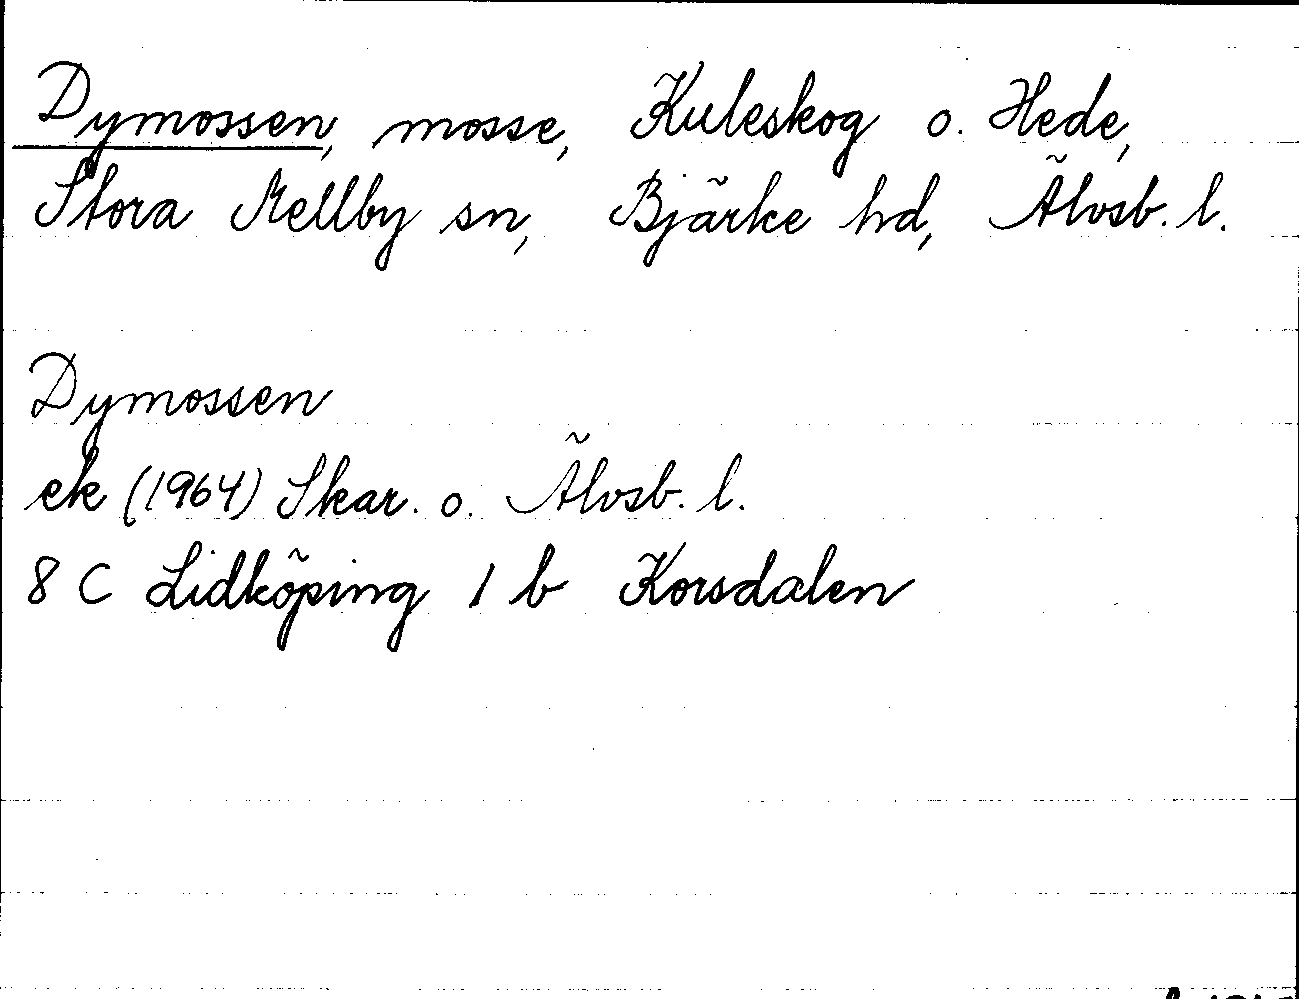 Dymossen, mosse, Kuleskog o. Hede,
Stora Mellby sn, Bjärke hd, Älvsb. l.
Dymossen
ek (1964) Skar. o. Älvsb. l.
8 C Lidköping 1 b Korsdalen